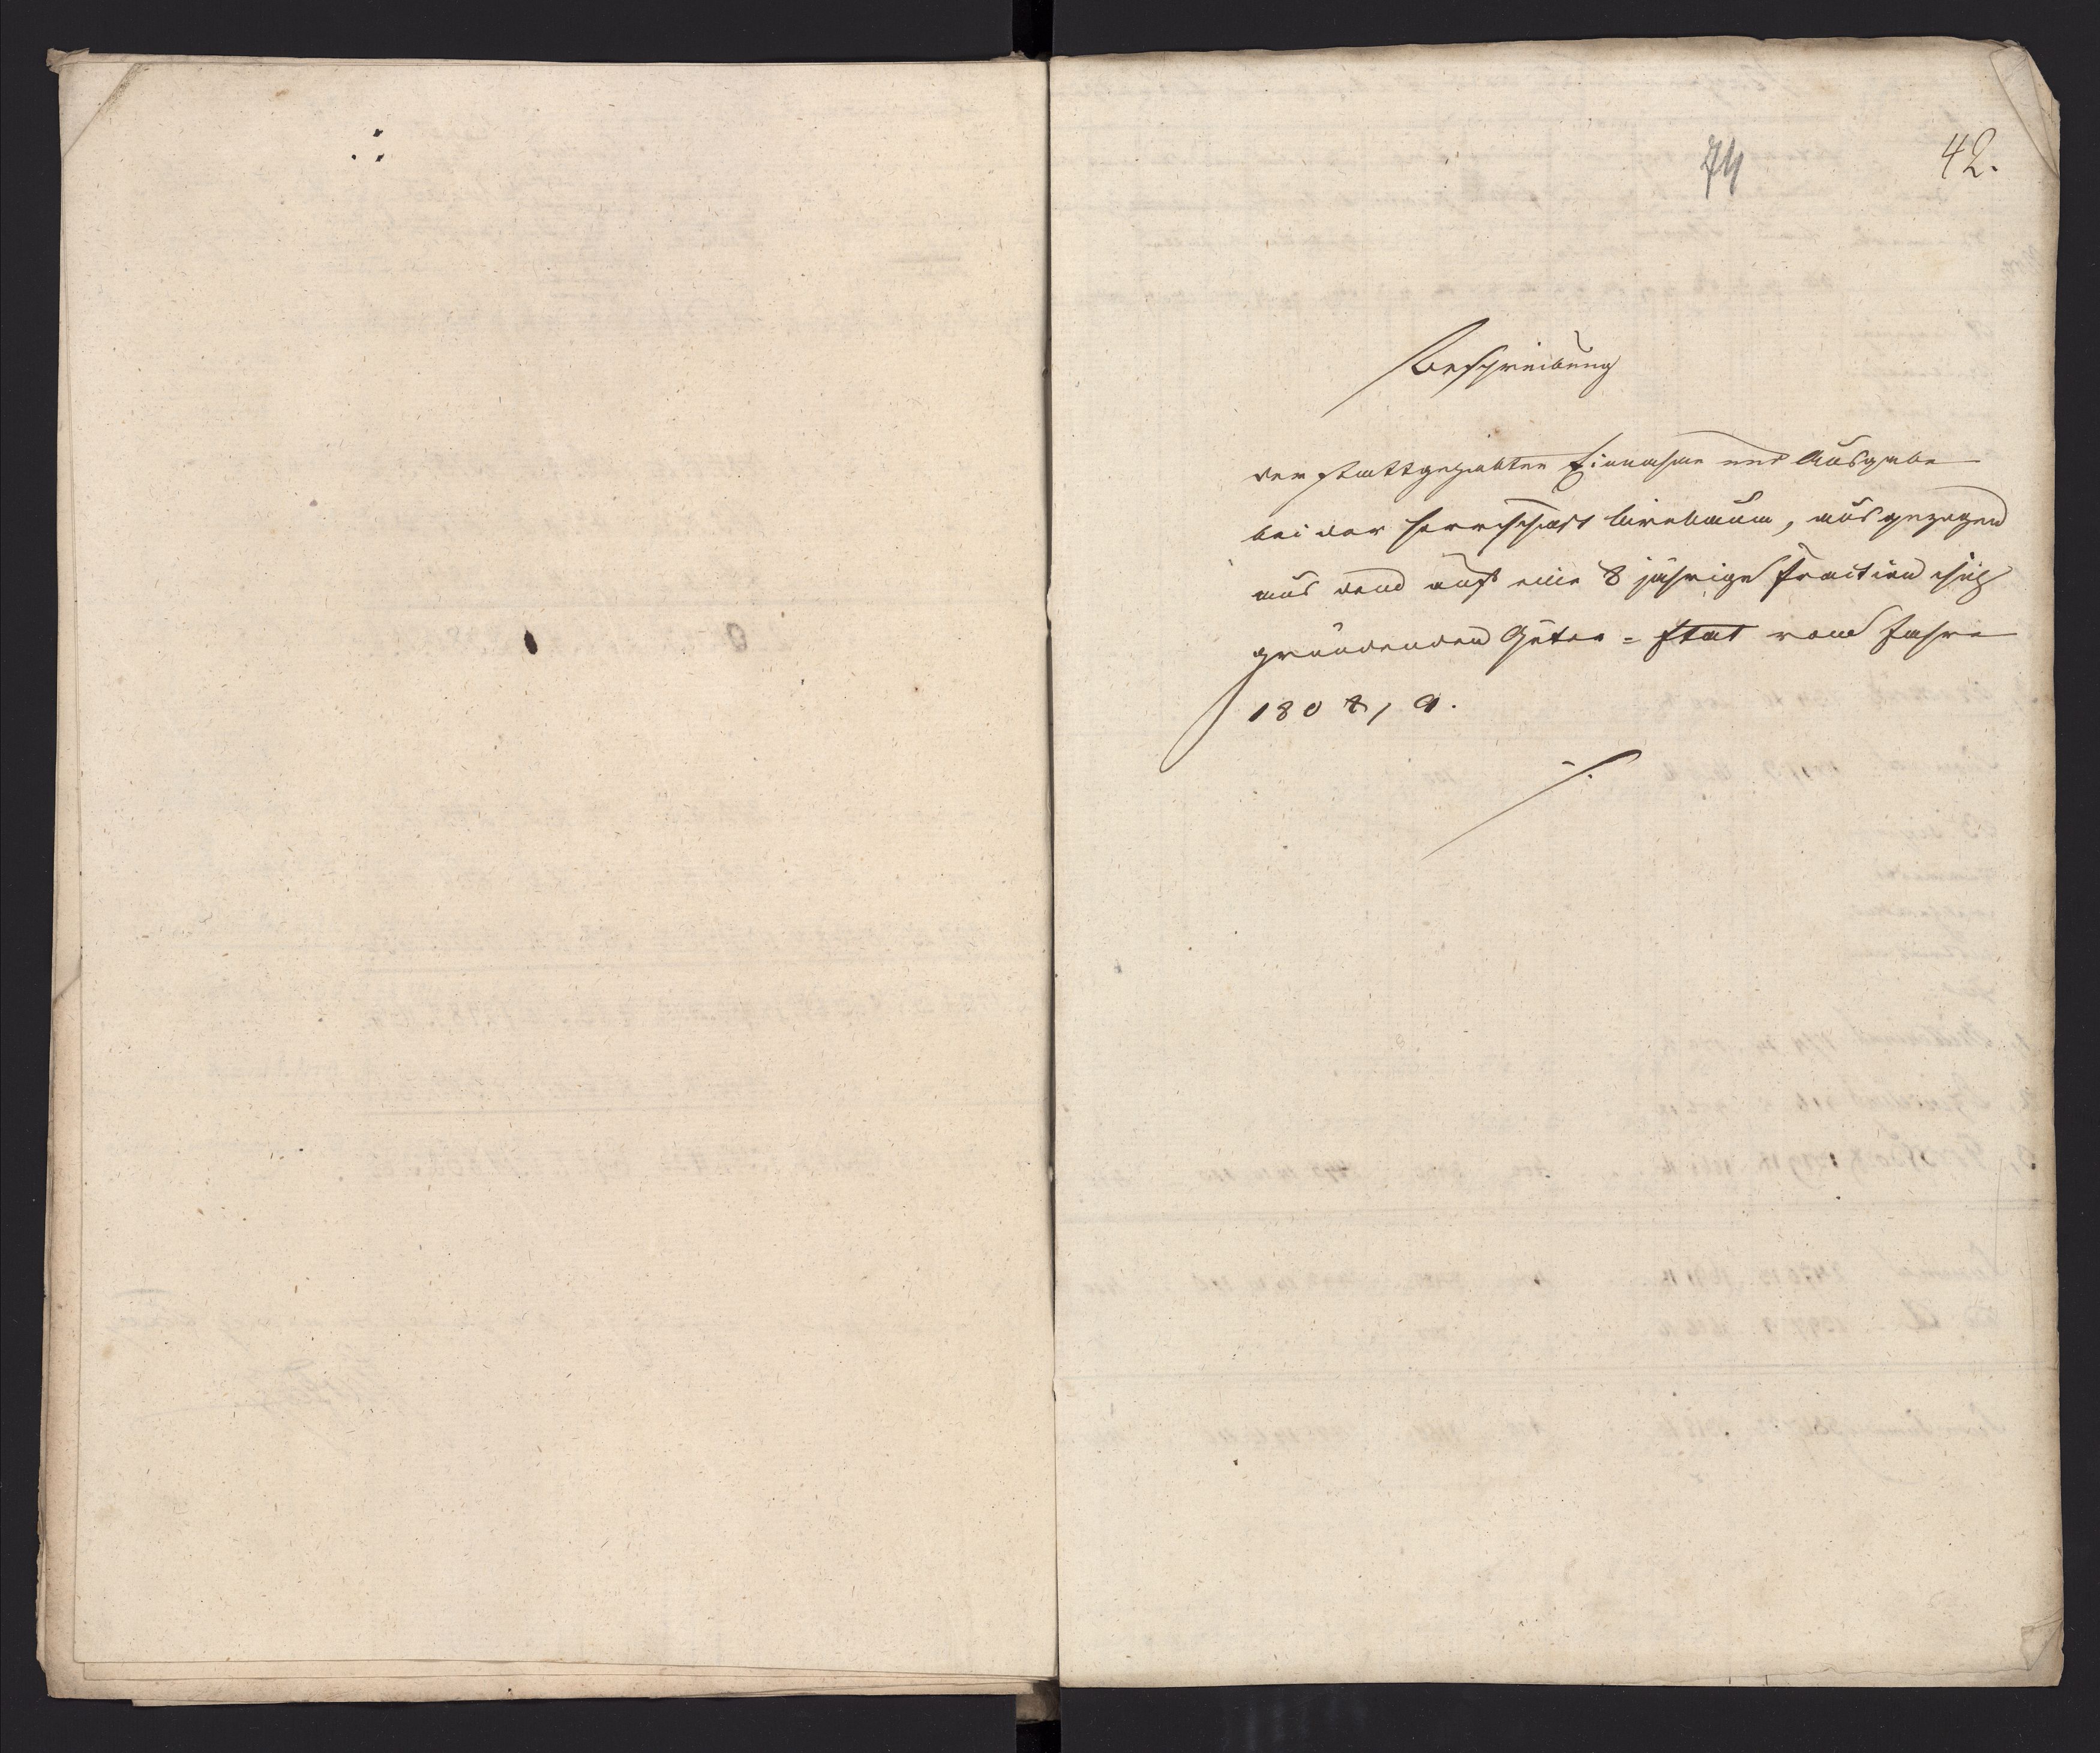 74
42.
Beschreibung
der stattgehabten Einnahme und Ausgabe
bei der Herrschaft Birnbaum, ausgezogen
aus dem auf eine 8 jährige Fraction sich
gründenden Güter = Etat vom Jahre
1808/9.